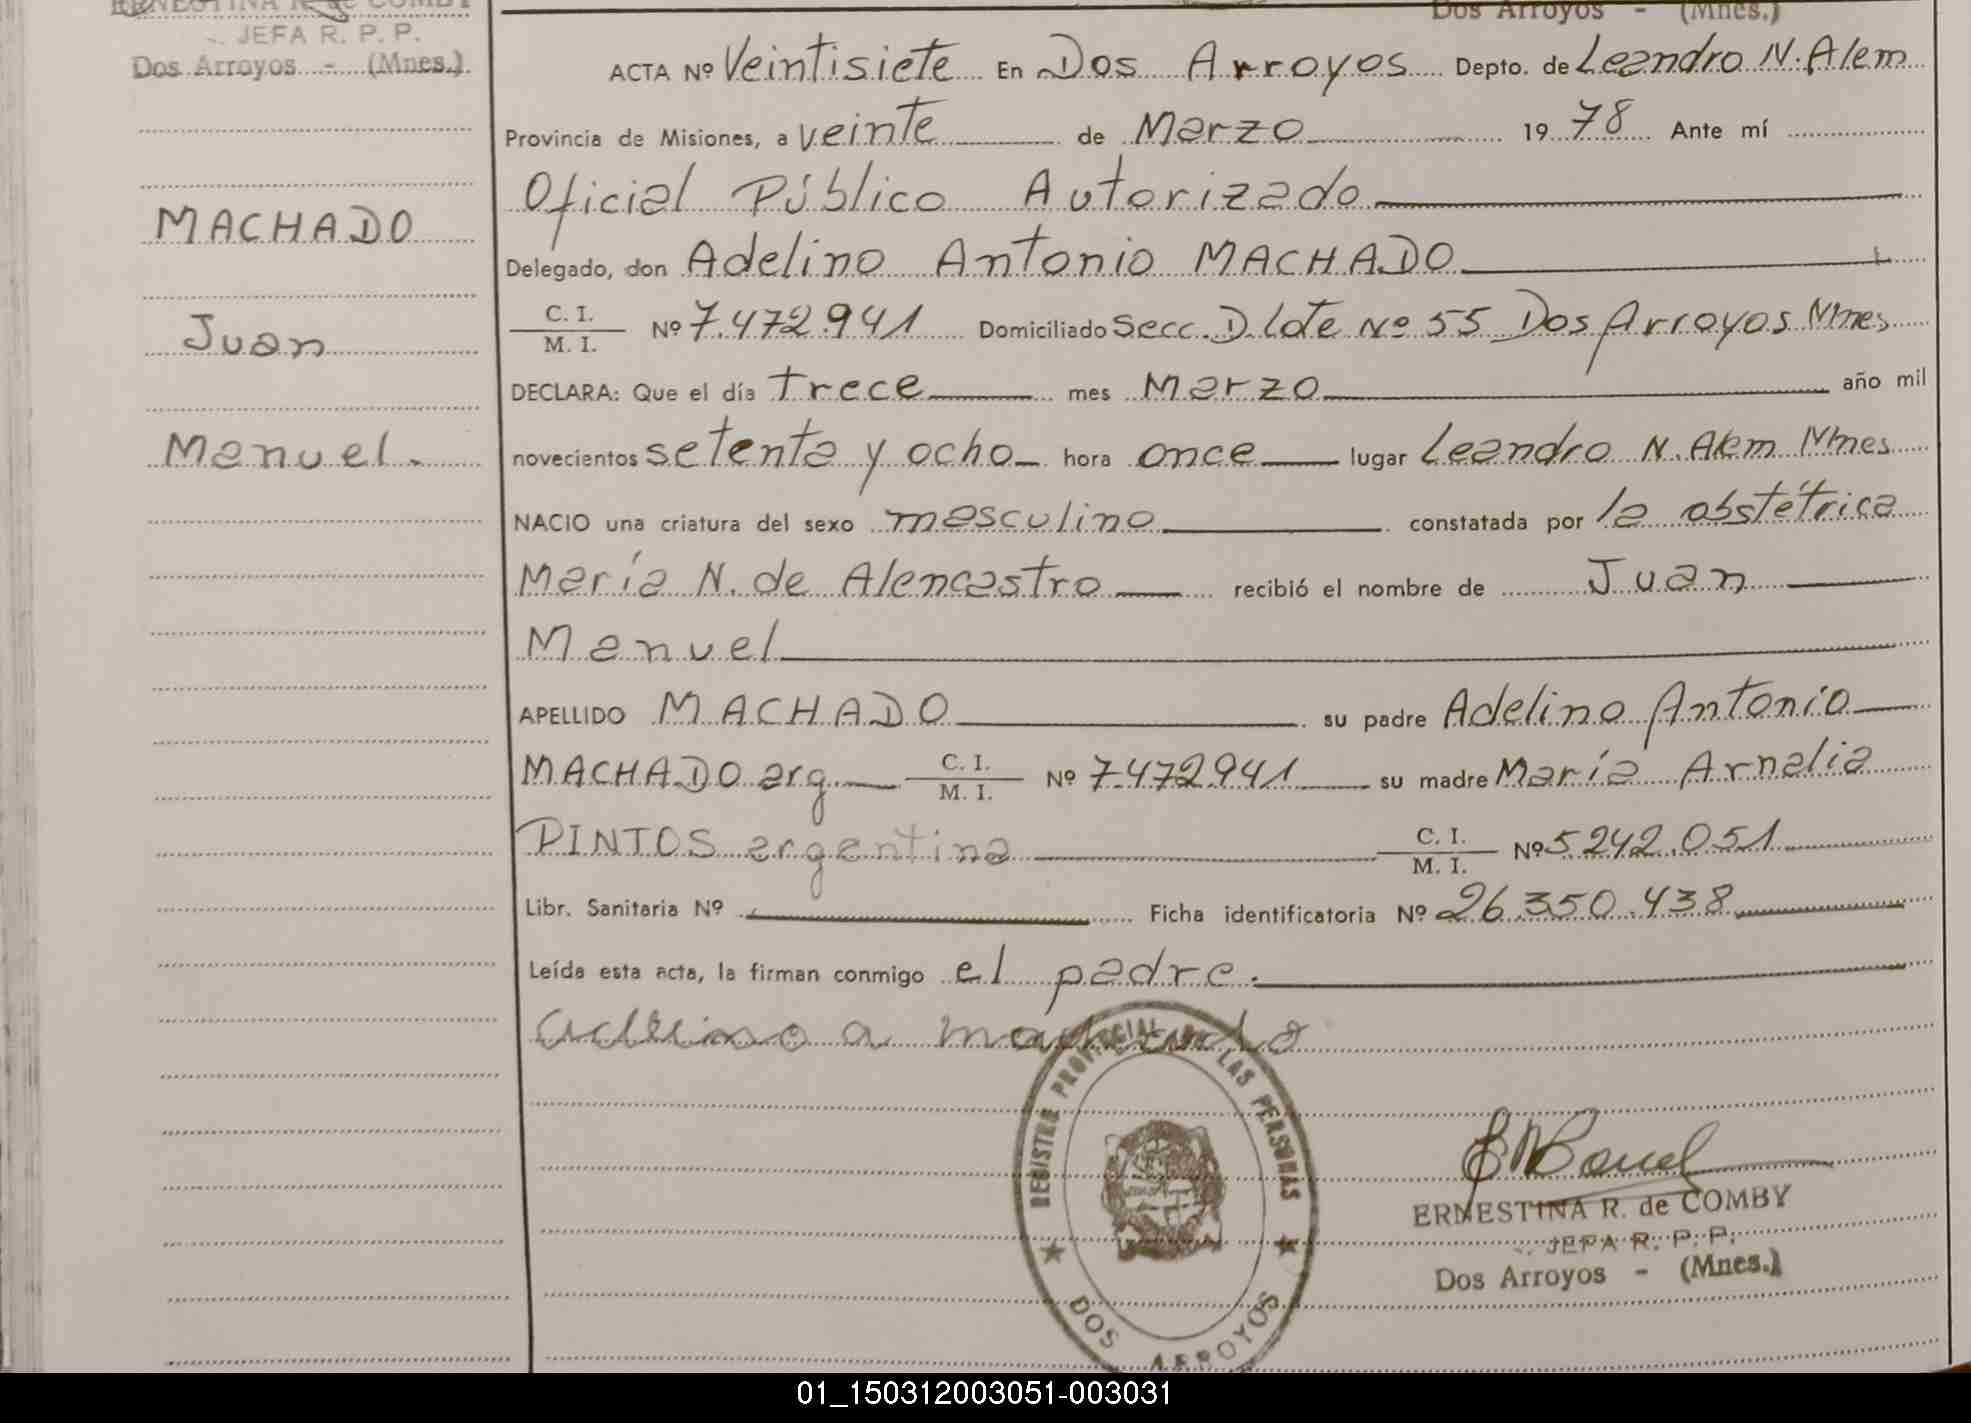 ERNESTINA R. de COMBY
JEFA R. P. P.
Dos Arroyos - (Mnes.)
MACHADO
Juan
Manuel.
Dos Arroyos - (Mnes.)
ACTA Nº Veintisiete En Dos Arroyos Depto. de Leandro N. Alem
Provincia de Misiones, a veinte de Marzo 1978 Ante mí
Oficial Público Autorizado
Delegado, don Adelino Antonio MACHADO
C. I. / M. I. Nº 7.472.941 Domiciliado Secc. D. lote Nº 55 Dos Arroyos Mnes
DECLARA: Que el día trece mes Marzo año mil
novecientos setenta y ocho hora once lugar Leandro N. Alem Mnes
NACIO una criatura del sexo masculino constatada por la obstétrica
María N. de Alencastro recibió el nombre de Juan
Manuel
APELLIDO MACHADO su padre Adelino Antonio
MACHADO arg. C. I. / M. I. Nº 7.472.941 su madre María Arnalia
PINTOS argentina C. I. / M. I. Nº 5.242.051
Libr. Sanitaria Nº Ficha identificatoria Nº 26.350.438
Leída esta acta, la firman conmigo el padre.
adelino a machado
REGISTRO PROVINCIAL DE LAS PERSONAS
DOS ARROYOS
ERNESTINA R. de COMBY
JEFA R. P. P.
Dos Arroyos - (Mnes.)
01_150312003051-003031